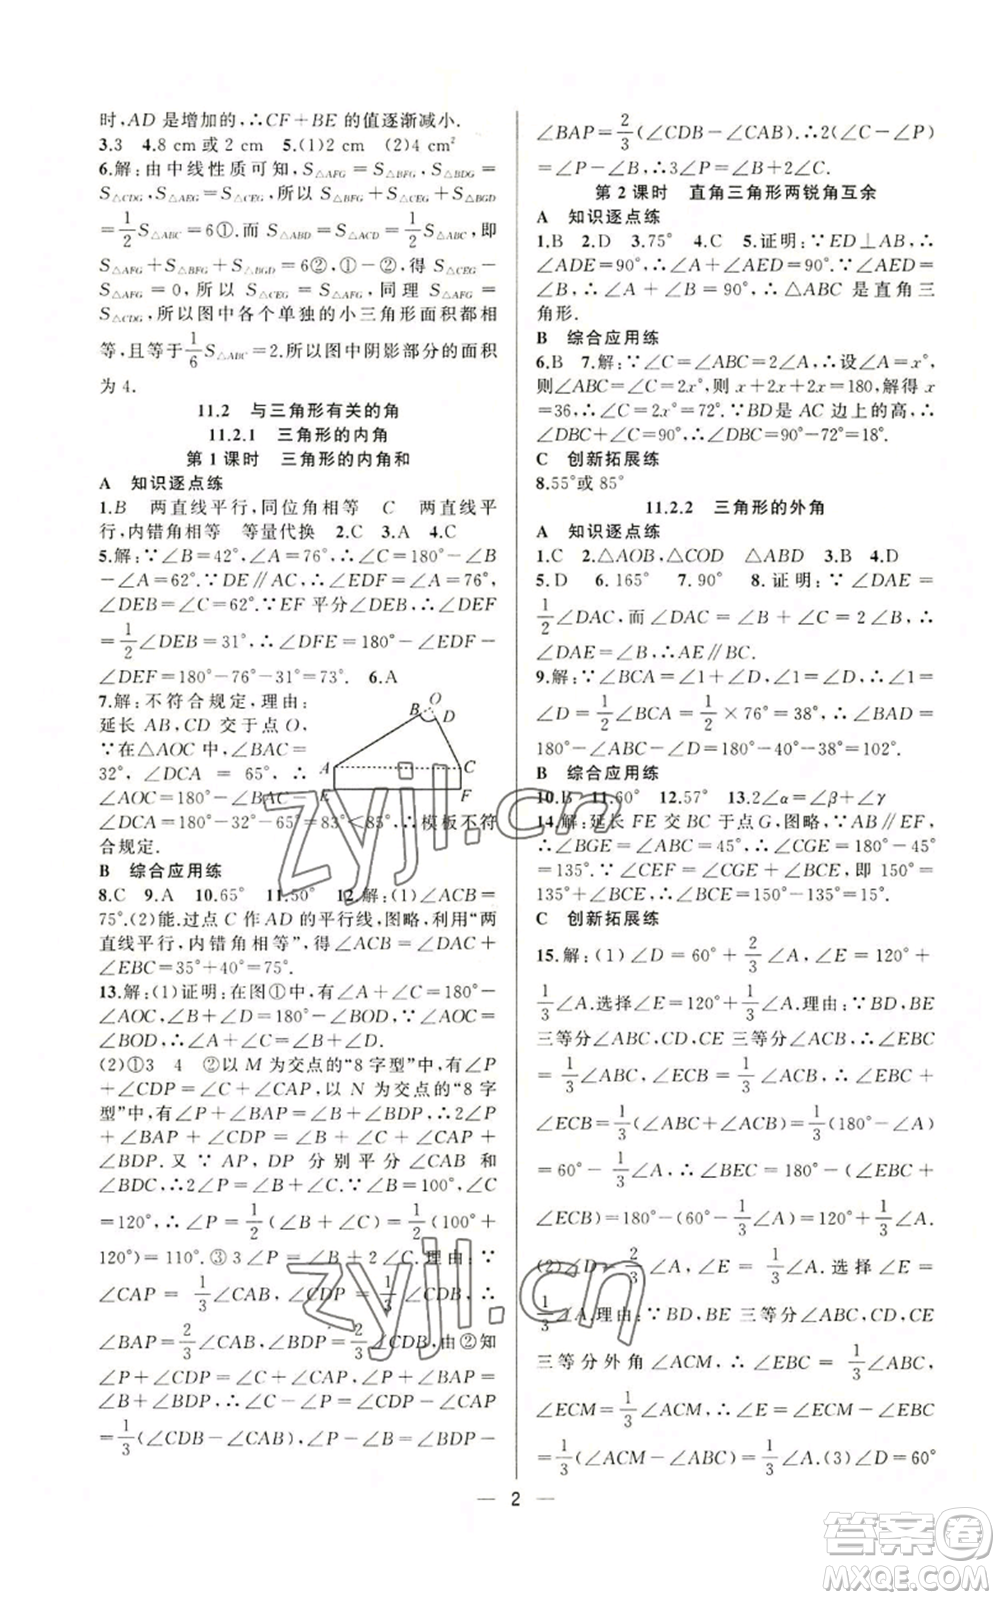 时,AD 是增加的,∴CF+BE 的值逐渐减小.
3.3 4.8 cm 或 2 cm 5.(1)2 cm (2)4 cm²
6.解:由中线性质可知,S△AFG=S△BFG,S△BDG=
S△CDG,S△AEG=S△CEG,所以 S△AFG+S△CEG+S△BGD
=1/2S△ABC=6①.而 S△ABD=S△ACD=1/2S△ABC,即
S△AFG+S△BFG+S△BGD=6②,①-②,得 S△CEG-
S△AFG=0,所以 S△CEG=S△AFG,同理 S△AFG=
S△CDG,所以图中各个单独的小三角形面积都相
等,且等于1/6S△ABC=2.所以图中阴影部分的面积
为 4.
11.2 与三角形有关的角
11.2.1 三角形的内角
第 1 课时 三角形的内角和
A 知识逐点练
1.B 两直线平行,同位角相等 C 两直线平
行,内错角相等 等量代换 2.C 3.A 4.C
5.解:∵∠B=42°,∠A=76°,∴∠C=180°-∠B
-∠A=62°.∵DE∥AC,∴∠EDF=∠A=76°,
∠DEB=∠C=62°.∵EF 平分∠DEB,∴∠DEF
=1/2∠DEB=31°,∴∠DFE=180°-∠EDF-
∠DEF=180°-76°-31°=73°. 6.A
7.解:不符合规定,理由:
延长 AB,CD 交于点 O,
∵在△AOC 中,∠BAC=
32°,∠DCA=65°,∴
∠AOC=180°-∠BAC-
∠DCA=180°-32°-65°=83°<85°.∴模板不符
合规定.
B O D
A C
E F
B 综合应用练
8.C 9.A 10.65° 11.50° 12.解:(1)∠ACB=
75°.(2)能.过点 C 作 AD 的平行线,图略,利用“两
直线平行,内错角相等”,得∠ACB=∠DAC+
∠EBC=35°+40°=75°.
13.解:(1)证明:在图①中,有∠A+∠C=180°-
∠AOC,∠B+∠D=180°-∠BOD,∵∠AOC=
∠BOD,∴∠A+∠C=∠B+∠D.
(2)①3 4 ②以 M 为交点的“8 字型”中,有∠P
+∠CDP=∠C+∠CAP,以 N 为交点的“8 字
型”中,有∠P+∠BAP=∠B+∠BDP,∴2∠P
+∠BAP+∠CDP=∠B+∠C+∠CAP+
∠BDP.又∵AP,DP 分别平分∠CAB 和
∠BDC,∴2∠P=∠B+∠C.∵∠B=100°,∠C
=120°,∴∠P=1/2(∠B+∠C)=1/2(100°+
120°)=110°.③3∠P=∠B+2∠C.理由:∵
∠CAP=1/3∠CAB,∠CDP=1/3∠CDB,∴
∠BAP=2/3∠CAB,∠BDP=2/3∠CDB,由②知
∠P+∠CDP=∠C+∠CAP,∠P+∠BAP=
∠B+∠BDP,∴∠C-∠P=∠CDP-∠CAP
=1/3(∠CDB-∠CAB),∠P-∠B=∠BDP-
∠BAP=2/3(∠CDB-∠CAB).∴2(∠C-∠P)
=∠P-∠B,∴3∠P=∠B+2∠C.
第 2 课时 直角三角形两锐角互余
A 知识逐点练
1.B 2.D 3.75° 4.C 5.证明:∵ED⊥AB,∴
∠ADE=90°,∴∠A+∠AED=90°.∵∠AED=
∠B,∴∠A+∠B=90°,∴△ABC 是直角三
角形.
B 综合应用练
6.B 7.解:∵∠C=∠ABC=2∠A,∴设∠A=x°,
则∠ABC=∠C=2x°,则 x+2x+2x=180,解得 x
=36,∴∠C=2x°=72°.∵BD 是 AC 边上的高,∴
∠DBC+∠C=90°,∴∠DBC=90°-72°=18°.
C 创新拓展练
8.55°或 85°
11.2.2 三角形的外角
A 知识逐点练
1.C 2.△AOB,△COD △ABD 3.B 4.D
5.D 6.165° 7.90° 8.证明:∵∠DAE=
1/2∠DAC,而∠DAC=∠B+∠C=2∠B,∴
∠DAE=∠B,∴AE∥BC.
9.解:∵∠BCA=∠1+∠2,∠1=∠2,∴∠1=
∠2=1/2∠BCA=1/2×76°=38°,∴∠BAD=
180°-∠BAC-∠D=180°-40°-38°=102°.
B 综合应用练
10.B 11.60° 12.57° 13.2∠α=∠β+∠γ
14.解:延长 FE 交 BC 于点 G,图略,∵AB∥EF,
∴∠BGE=∠ABC=45°,∴∠CGE=180°-45°
=135°.∵∠BCE+∠CGE=∠CEF,即 150°=
135°+∠BCE,∴∠BCE=150°-135°=15°.
C 创新拓展练
15.解:(1)∠D=60°+2/3∠A,∠E=120°+
1/3∠A.选择∠E=120°+1/3∠A.理由:∵BD,BE
三等分∠ABC,CD,CE 三等分∠ACB,∴∠EBC
=1/3∠ABC,∠ECB=1/3∠ACB,∴∠EBC+
∠ECB=1/3(∠ABC+∠ACB)=1/3(180°-∠A)
=60°-1/3∠A,∴∠BEC=180°-(∠EBC+
∠ECB)=180°-(60°-1/3∠A)=120°+1/3∠A.
(2)∠D=2/3∠A,∠E=1/3∠A.选择∠E=
1/3∠A.理由:∵BD,BE 三等分∠ABC,CD,CE
三等分外角∠ACM,∴∠EBC=1/3∠ABC,
∠ECM=1/3∠ACM,∴∠E=∠ECM-∠EBC
=1/3(∠ACM-∠ABC)=1/3∠A.(3)∠D=60°
2
zyjl.cn
zyjl.cn
答案圈
MXQE.COM